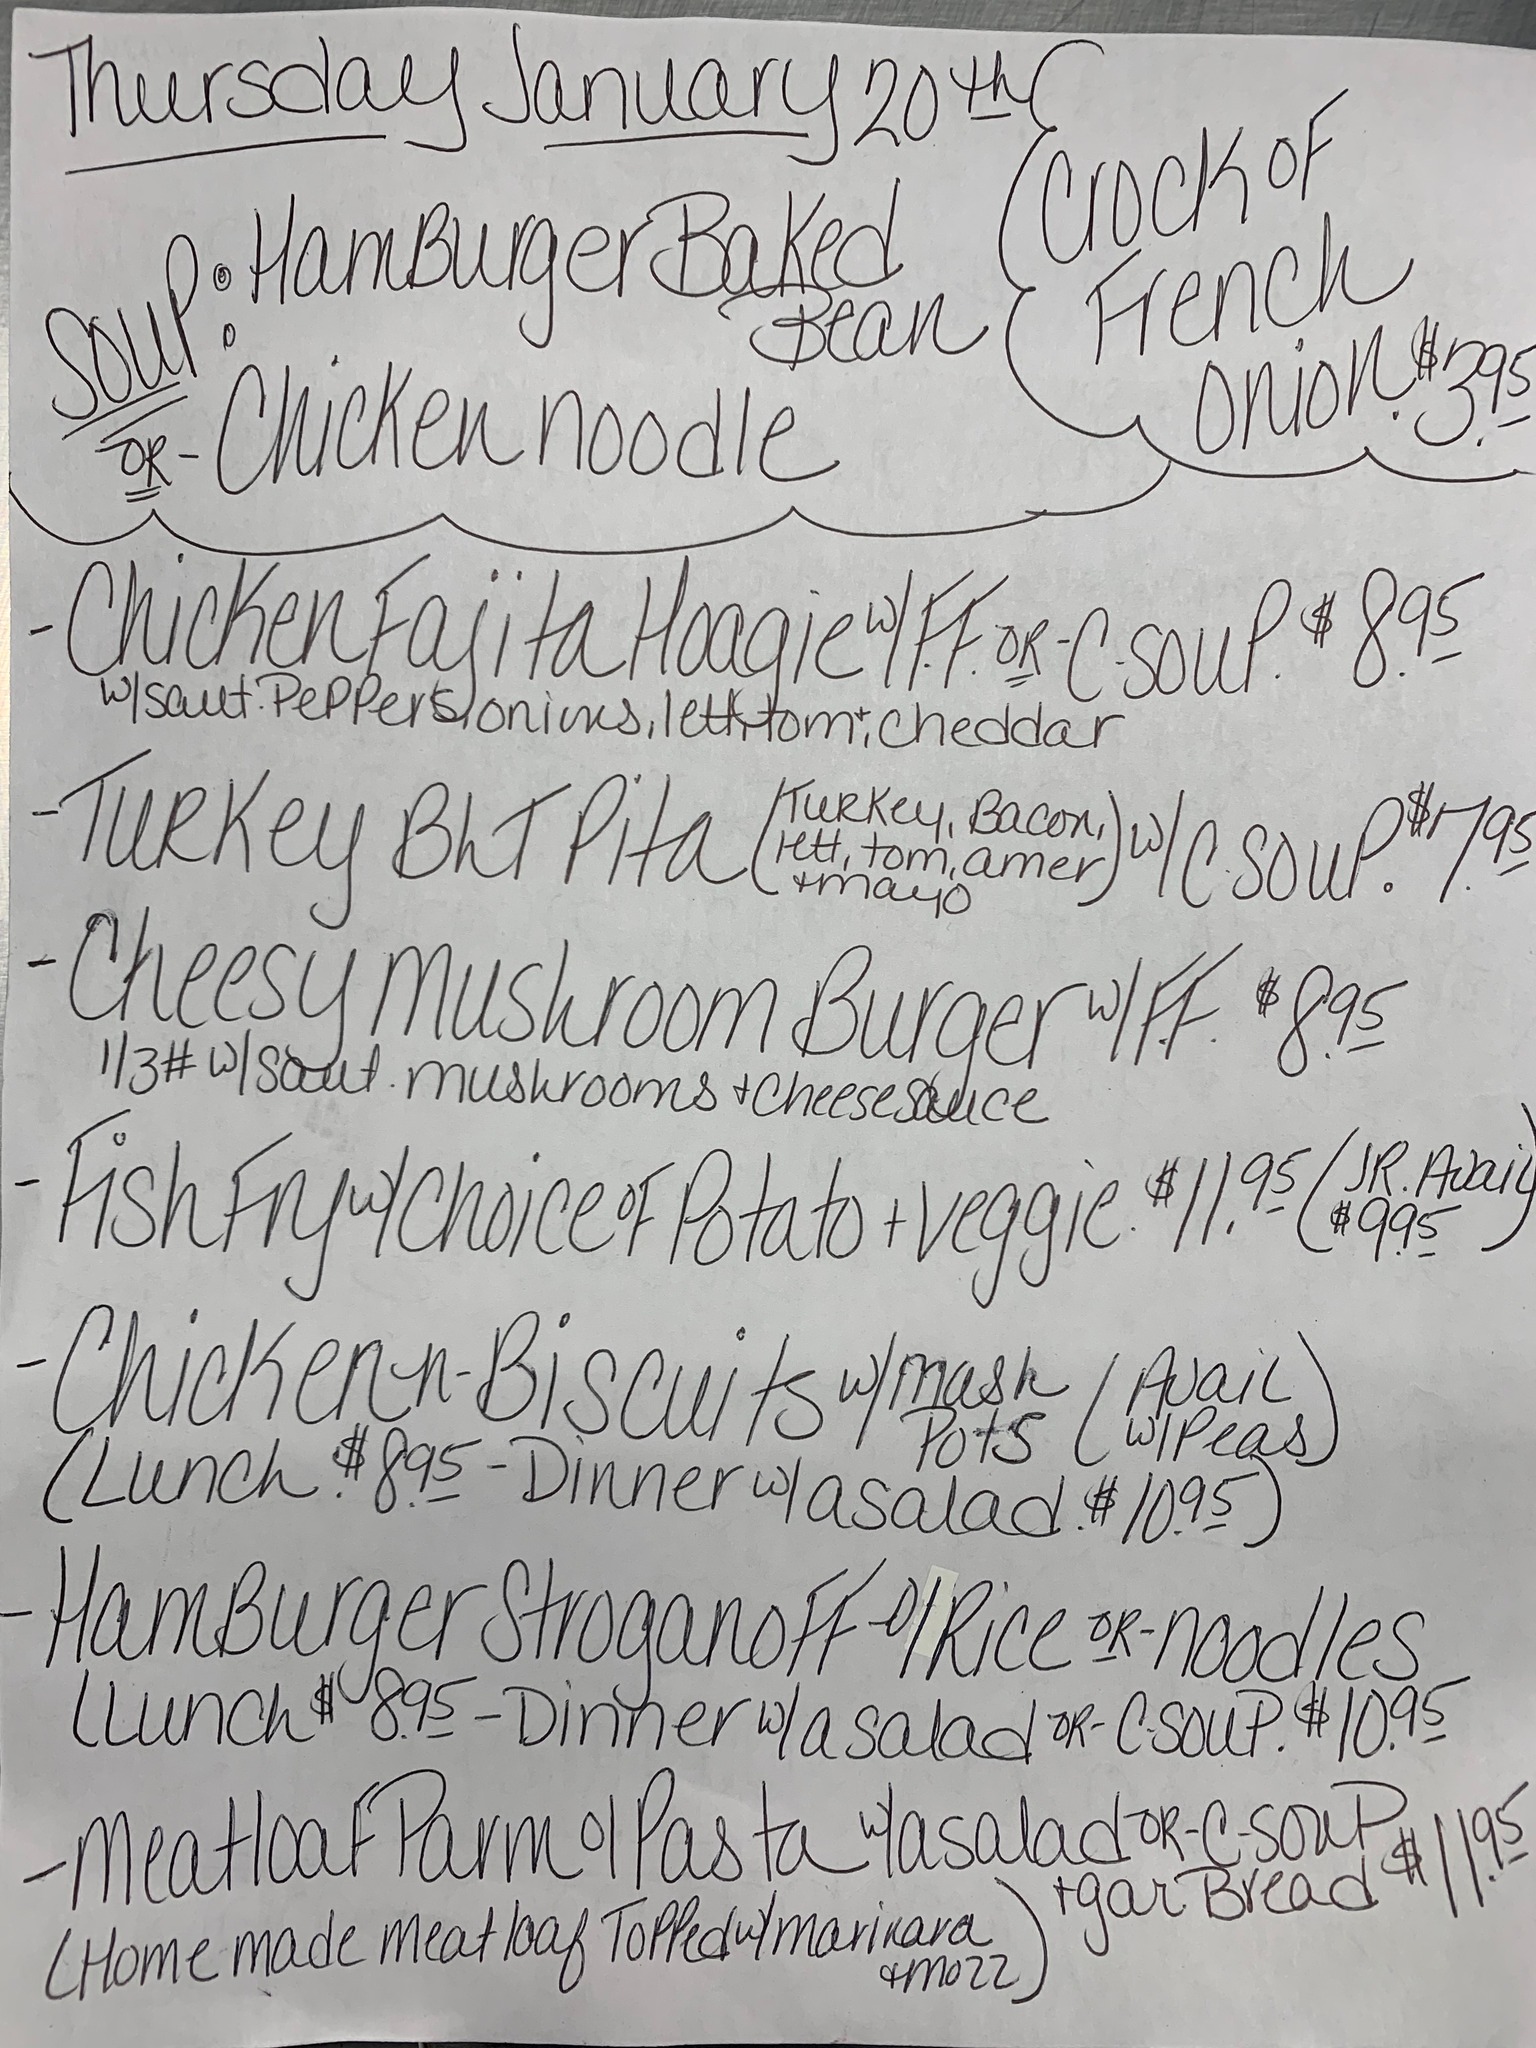 Thursday January 20th
Soup: Hamburger Baked
Bean
OR - Chicken noodle
Crock of
French
Onion. $3.95
- Chicken Fajita Hoagie w/F.F. OR - C. Soup. $8.95
w/saut. Peppers, onions, lett, tom + cheddar
- Turkey BLT Pita (Turkey, Bacon, lett, tom, amer + mayo) w/ C. Soup. $7.95
- Cheesy Mushroom Burger w/ F.F. $8.95
1/3# w/saut. mushrooms + cheese sauce
- Fish Fry w/ Choice of Potato + veggie. $11.95 (JR. Avail $9.95)
- Chicken-n-Biscuits w/ mash Pots (Avail w/ Peas)
(Lunch. $8.95 - Dinner w/ a salad. $10.95)
- Hamburger Stroganoff o/ Rice OR - noodles
(Lunch $8.95 - Dinner w/ a salad OR - C. Soup. $10.95
- Meatloaf Parm o/ Pasta w/ a salad OR - C. Soup
+ gar. Bread $11.95
(Home made meatloaf Topped w/ marinara + mozz)